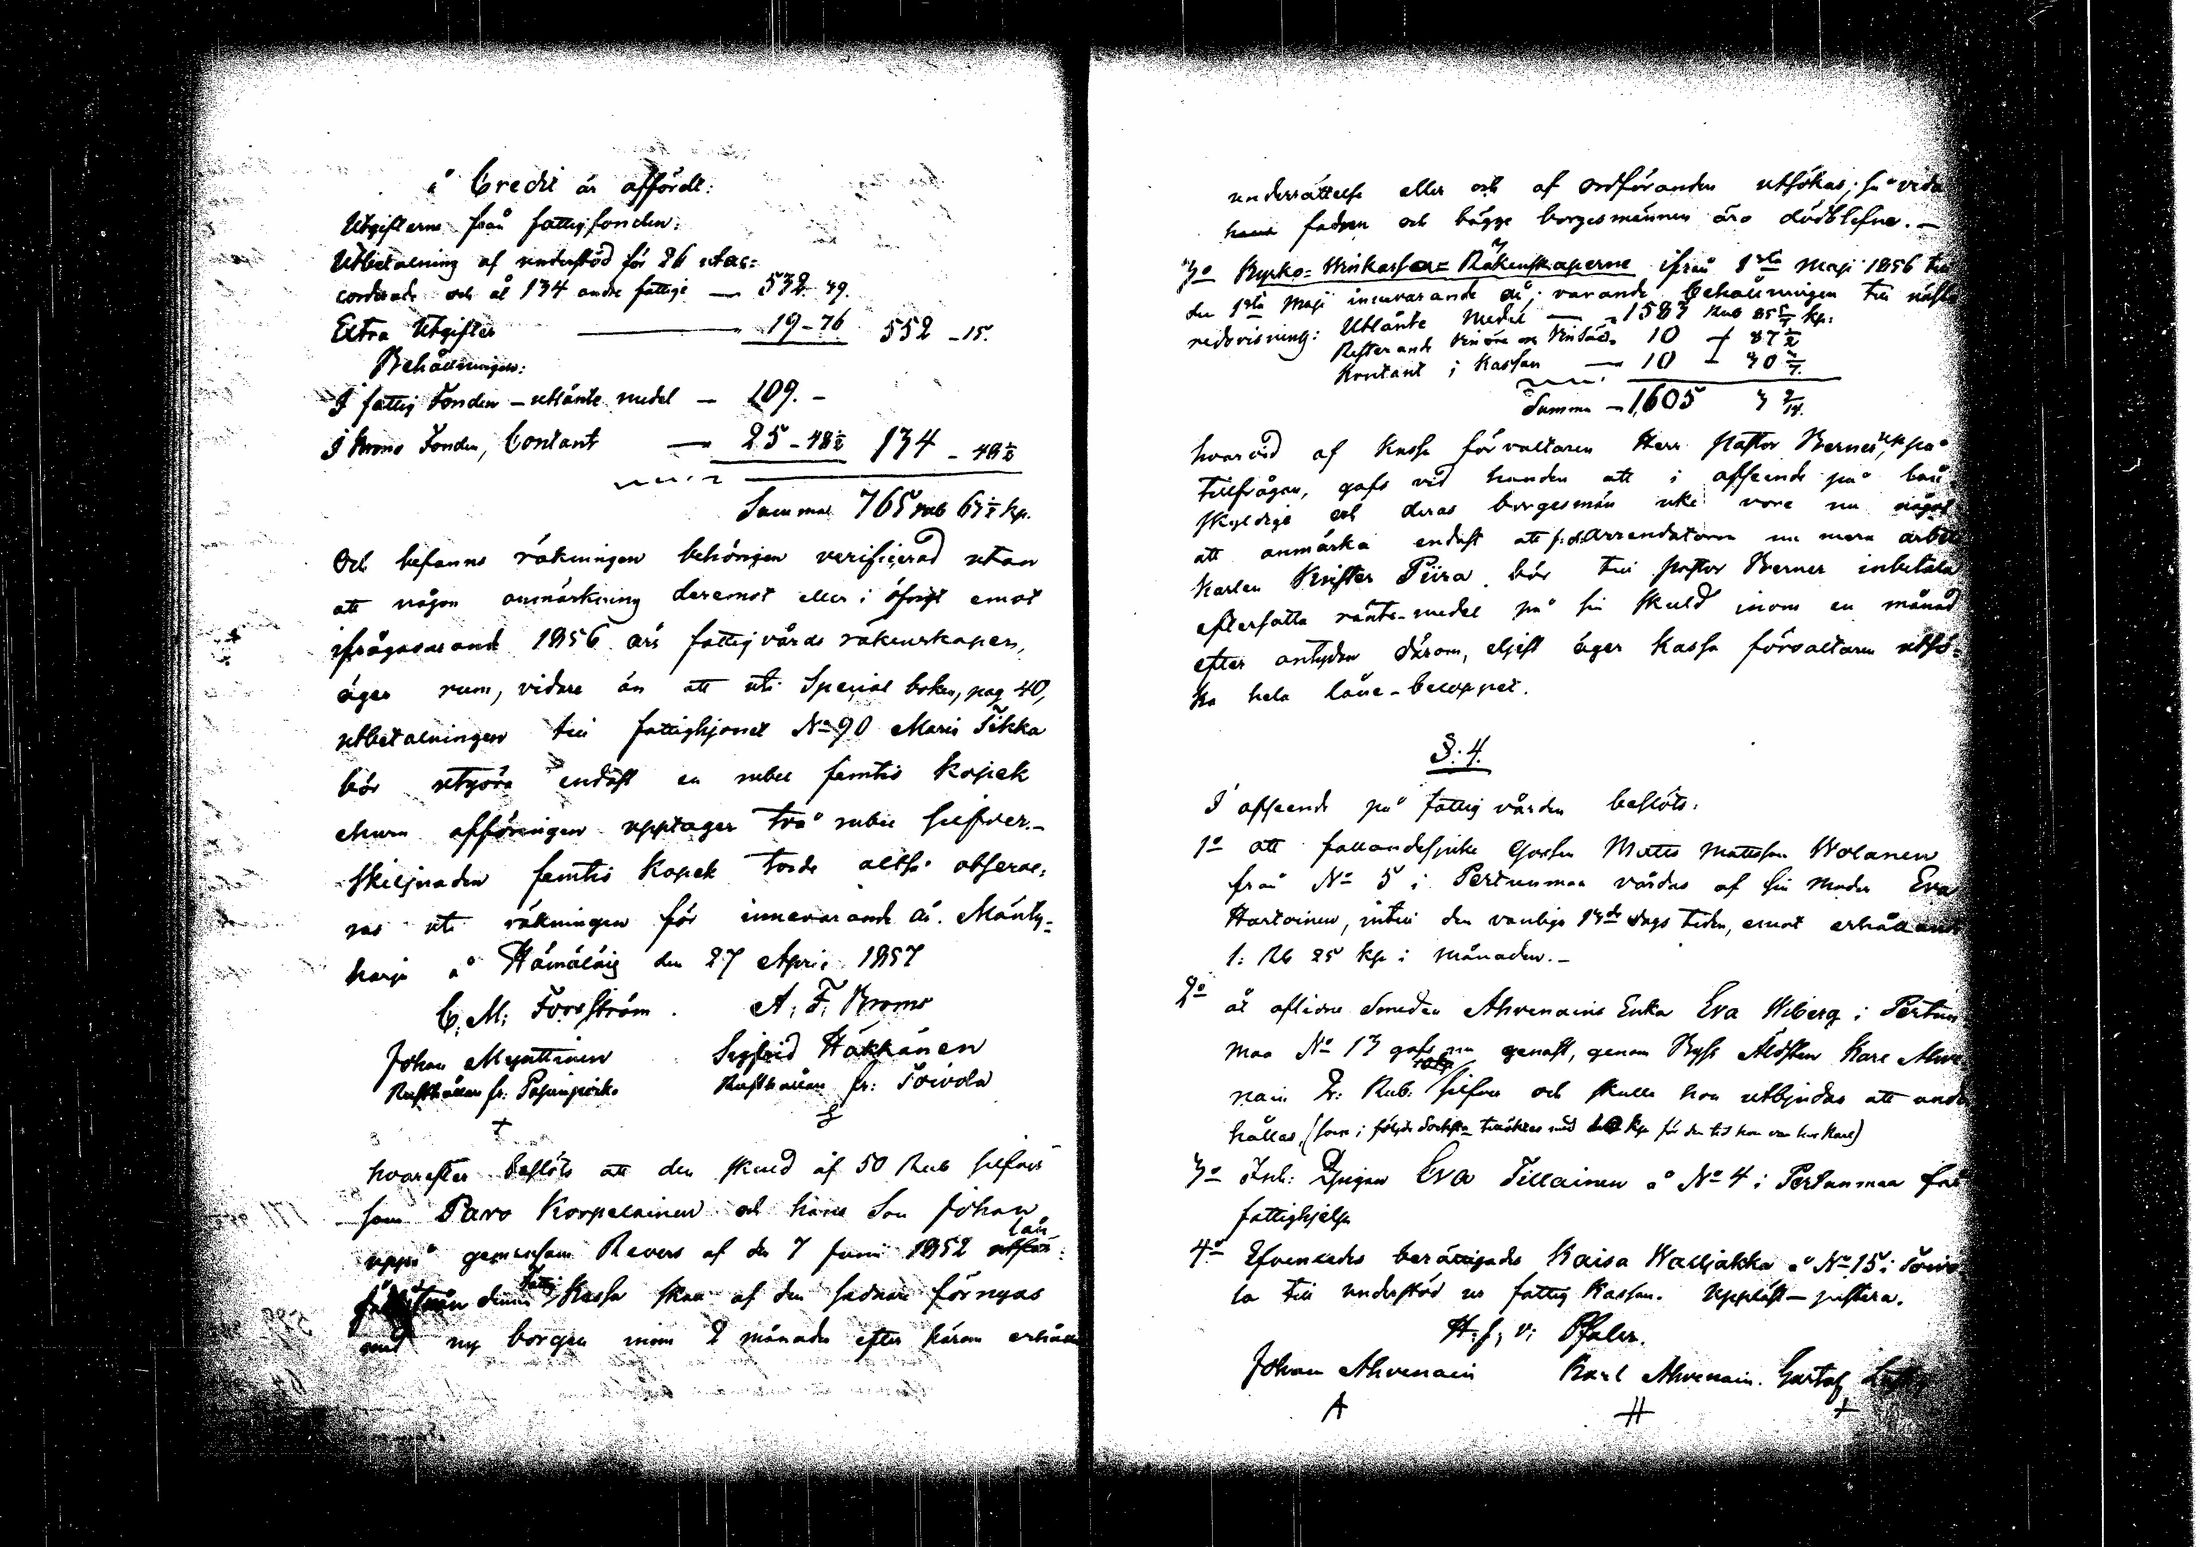 å Credit är affördt:
Utgifterne från fattigfonden:
Utbetalning af understöd för 26 utac=
corderade och åt 134 andre fattige — 532. 39.
Extra Utgifter — 19-76 552 - 15.
Behållningen:
I fattig Fonden - utlånte medel - 109. -
I Broms Fonden, Contant — 25 - 48½ 134 - 48½
Summa 765 rub 63½ kp.
Och befanns räkningen behörigen verificerad utan
att någon anmärkning deremot eller i öfrigt emot
ifrågavarande 1856 års fattigvårds räkenskaper,
äger rum, vidare än att uti Special boken, pag 40,
utbetalningen till fattighjonet No 90 Maria Tikka
bör utgöra endast en rubel femtio kopek
ehuru afföringen upptager två rubel silfver.-
Skiljnaden femtio kopek torde altså observe=
ras uti räkningen för innevarande år. Mänty=
harju å Hämäläis den 27 April 1857
C. M. Forsström. A. F. Broms
Johan Mynttinen Sigfrid Häkkänen
Rusthållare fr: Rusthållare fr: Toivola
hvarefter beslöts att den skuld af 50 Rub silfver
som Paro Korpelainen och hans Son Johan
uppå gemensam Revers af den 7 Juni 1852 lån
denna fattig Kassa skall af den sednare förnyas
med ny borgen inom 2 månader efter härom erhållen
underrättelse eller och af ordföranden utsökas; så vida
fadren och bägge borgesmännen äro dödblefne.-
3o Kyrko= Räkenskaperne ifrån 1sta Maji 1856 till
den 1sta Maji innevarande år; varande behållningen till nästa
redovisning: Utlånte medel — 1583 Rub 85 kp:
Resterande 10 87½
Kontant i Kassan — 10 30
Summa - 1,605 3
hvarvid af Kassa förvaltaren Herr Pastor Berner, uppå
tillfrågan, gafs vid handen att i afseende på lån
skyldige och deras borgesmän icke vore nu något
att anmärka endast att f.d. Arrendatorn nu mera arbets
karlen Krister Piira bör till Pastor Berner inbetala
eftersatta ränte-medel på sin skuld inom en månad
efter antydan därom, eljest äger Kassa förvaltaren utsö=
ka hela låne-beloppet.
§. 4.
I afseende på fattig vården beslöts:
1o att fallandesjuke Gossen Matts Mattsson Wolanen
från No 5 i Pertunmaa vårdas af sin moder Eva
Hartoinen, intill den vanliga dags tiden, emot erhållande
1: Rb 25 kp i månaden.-
2o åt aflidne Smeden Ahvenains Enka Eva Wiberg i Pertun
maa No 13 gafs nu genast, genom Karl Ahve
nain 2: Rub: silfver och skulle hon utbjudas att under
hållas, (som i följd tillöktes med kp för den tid hon var hos Karl)
3o Inh: Pigan Eva Tillainen å No 4 i Pertunmaa får
fattighjelp
4o Efvenledes berättigades Kaisa Walljakka å No 15 i Toivo
la till understöd ur fattig Kassan. Uppläst - justera.
H: f: v: Pfaler.
Johan Ahvenain Karl Ahvenain. Gustaf
A H +